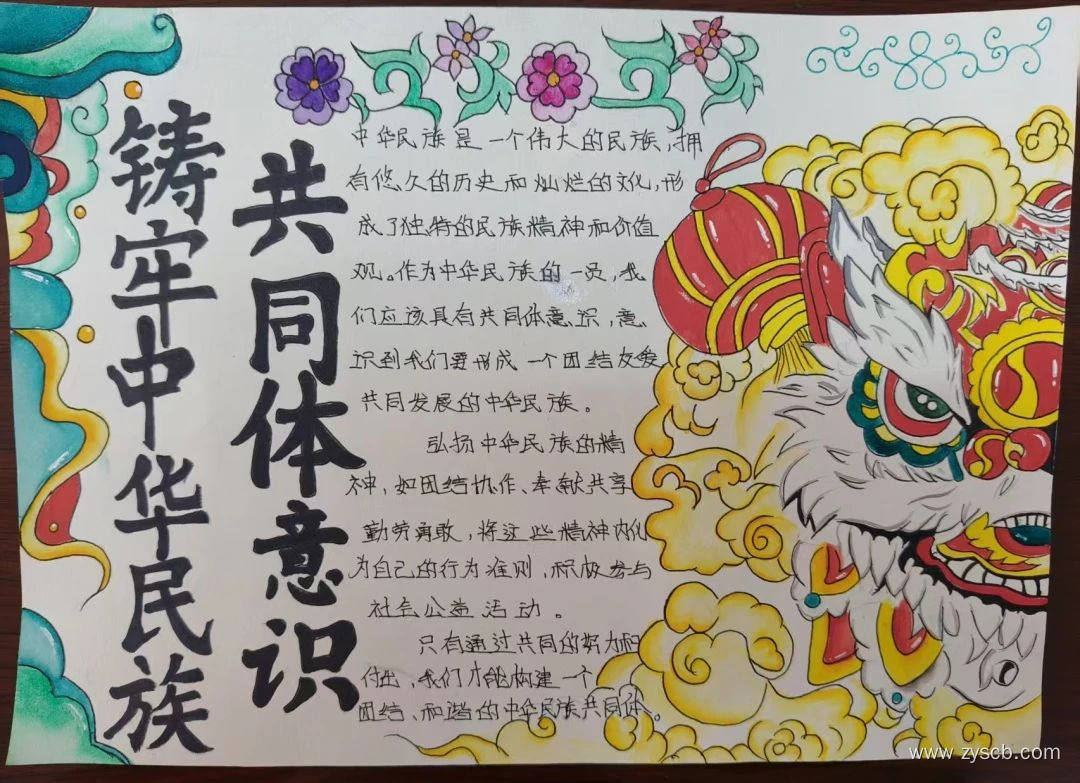 铸牢中华民族
共同体意识
中华民族是一个伟大的民族,拥
有悠久的历史和灿烂的文化,形
成了独特的民族精神和价值
观。作为中华民族的一员,我
们应该具有共同体意识,意
识到我们要形成一个团结友爱
共同发展的中华民族。
弘扬中华民族的精
神,如团结协作、奉献共享
勤劳勇敢,将这些精神内化
为自己的行为准则,积极参与
社会公益活动。
只有通过共同的努力和
付出,我们才能构建一个
团结、和谐的中华民族共同体。
www.zyscb.com